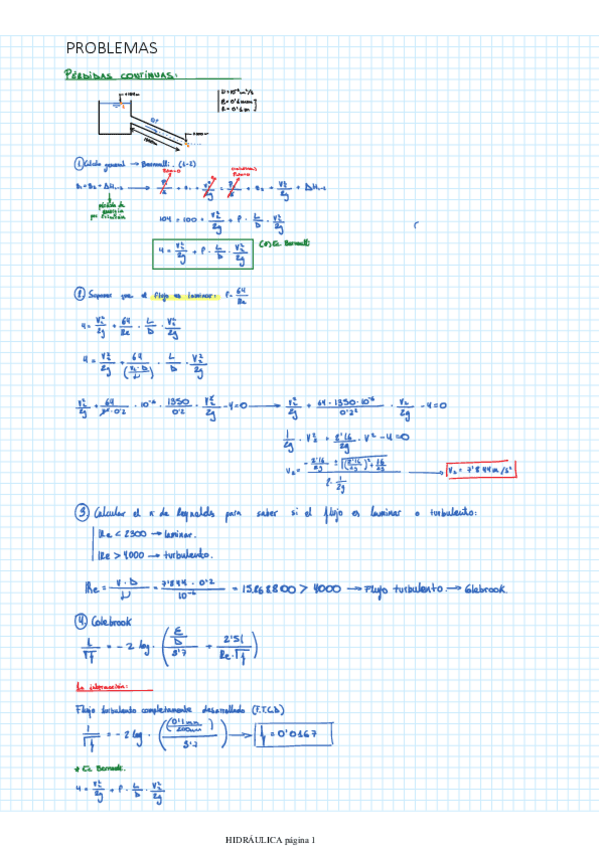 PROBLEMAS
PÉRDIDAS CONTINUAS:
① Cálculo general → Bernoulli. (1-2)
z₁ = z₂ + ΔH₁₋₂ →
pérdida de energía por fricción
104 = 100 + V₂²/2g + f · L/D · V₂²/2g
4 = V₂²/2g + f · L/D · V₂²/2g (*) Ec. Bernoulli
② Suponer que el flujo es laminar: f = 64/Re
4 = V₂²/2g + 64/Re · L/D · V₂²/2g
4 = V₂²/2g + 64/(V₂·D/ν) · L/D · V₂²/2g
V₂²/2g + 64/(V₂·0'2) · 10⁻⁶ · 1350/0'2 · V₂²/2g - 4 = 0 → V₂²/2g + 64·1350·10⁻⁶/0'2² · V₂/2g - 4 = 0
1/2g · V₂² + 2'16/2g · V₂ - 4 = 0
V₂ = → V₂ = 7'844 m/s²
③ Calcular el n de Reynolds para saber si el flujo es laminar o turbulento:
Re < 2300 → laminar.
Re > 4000 → turbulento.
Re = V·D/ν = 7'844 · 0'2/10⁻⁶ = 1568800 > 4000 → Flujo turbulento → Colebrook
④ Colebrook
1/√f = -2 log · ((ε/D)/3'7 + 2'51/(Re·√f))
1a interacción:
Flujo turbulento completamente desarrollado (F.T.C.D)
1/√f = -2 log · ((0'1mm/200mm)/3'7) → f = 0'0167
* Ec. Bernoulli.
4 = V₂²/2g + f · L/D · V₂²/2g
HIDRÁULICA página 1